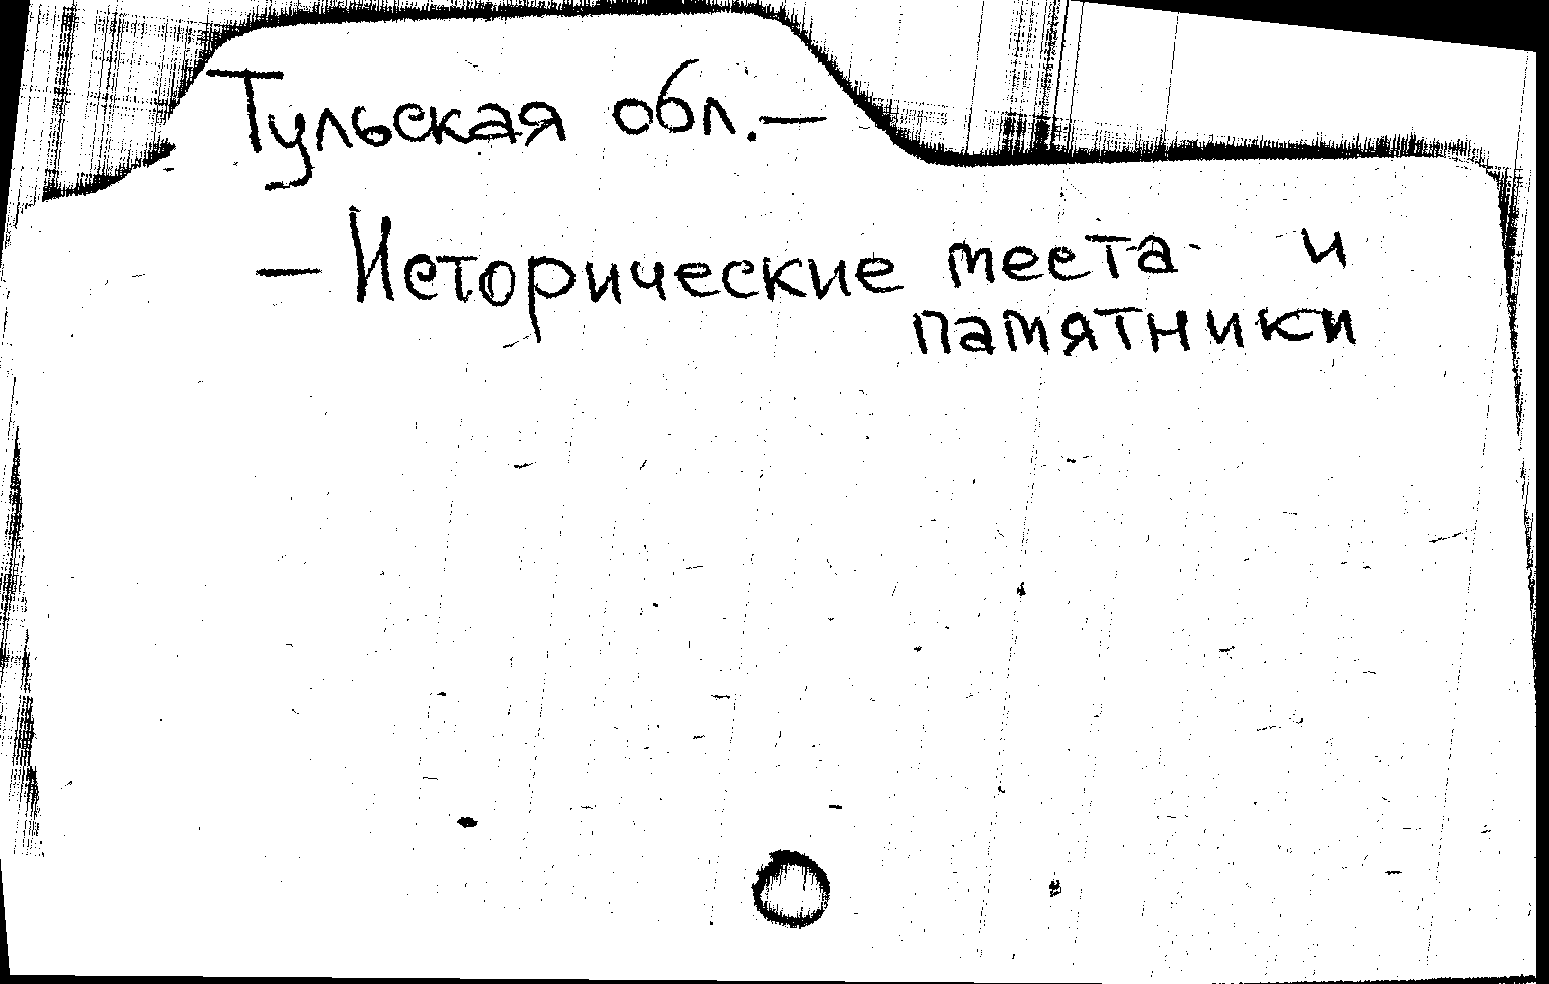 Тульская обл. —
— Исторические места и
памятники